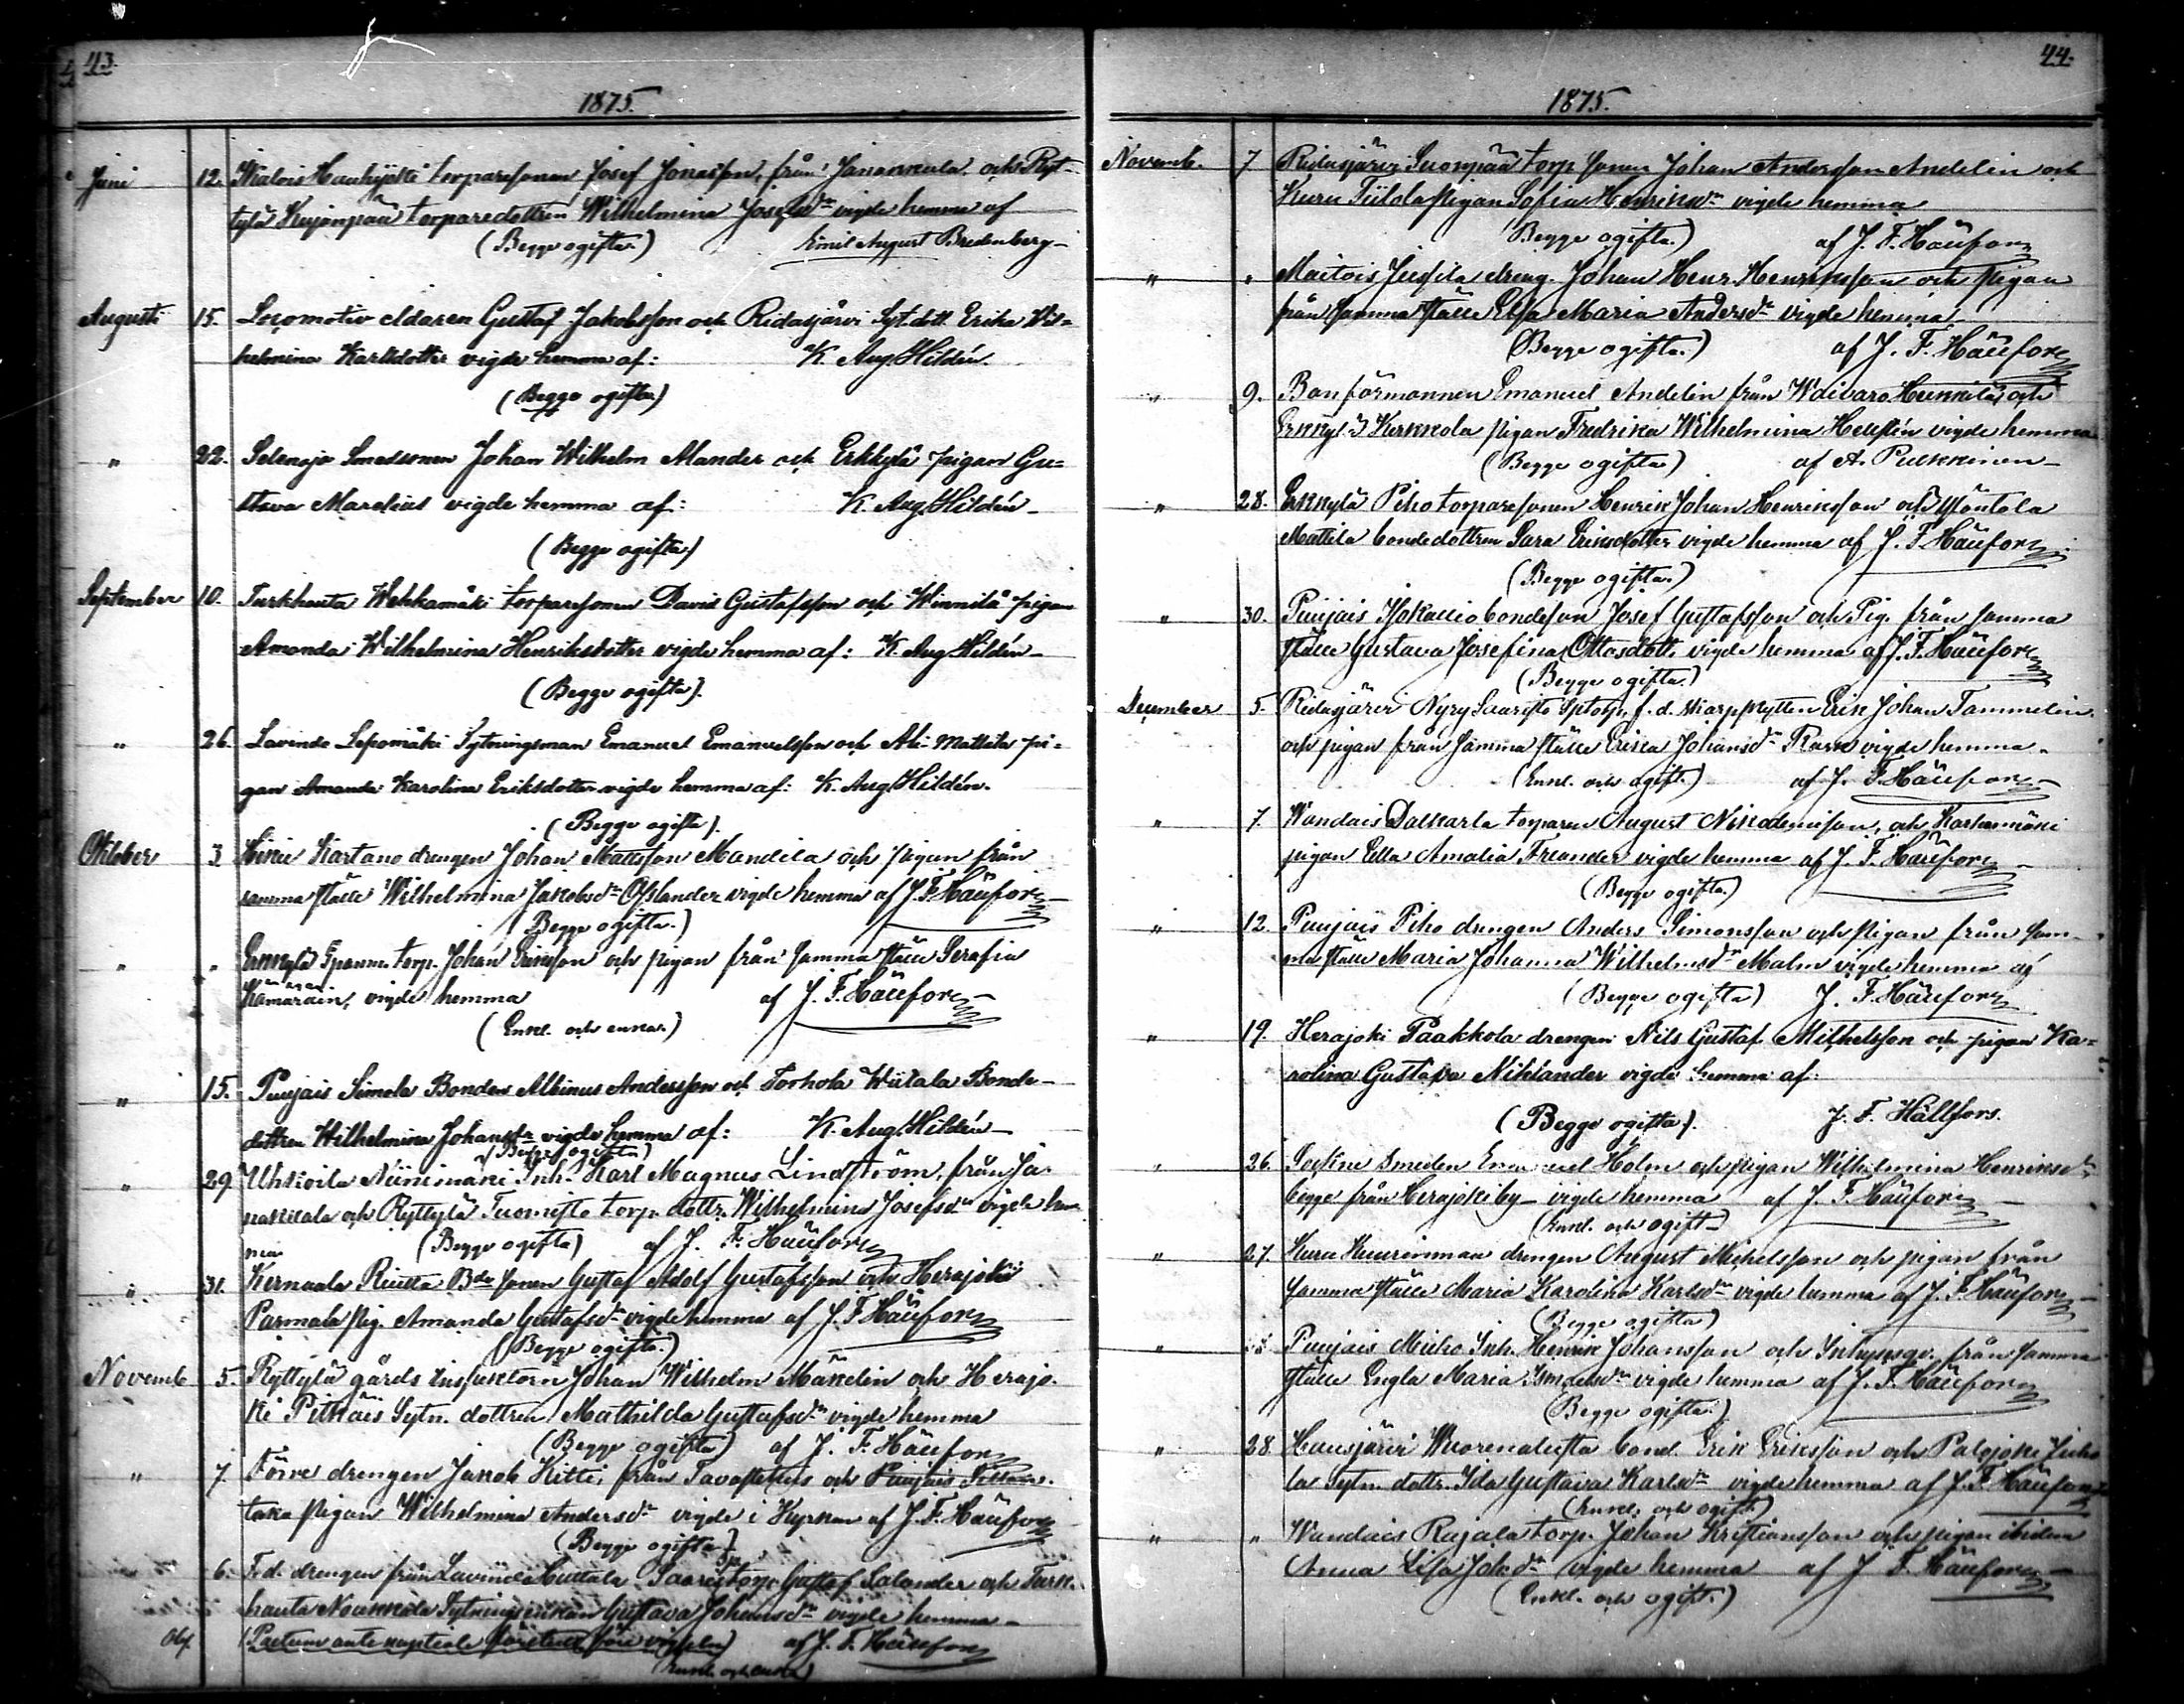 43.
1875.
Juni 12. Wialois Hauhijetti torparesonen Josef Jonasson, från Janakkala och Ryt-
tylä Kujanpää torparedottren Wilhelmina Josefsdr vigde hemma af
(Begge ogifta.) Emil August Bredenberg
Augusti 15. Locomotiv eldaren Gustaf Jakobsson och Ridasjärvi Syt. dott. Erika Wil-
helmina Karlsdotter vigde hemma af: K. Aug. Hildén.
(Begge ogifta)
" 22. Selensjo Smedsonen Johan Wilhelm Mander och Erkkylä pigan Gu-
stava Marelius vigde hemma af: K. Aug. Hildén
(Begge ogifta)
September 10. Turkhauta Wehkamäki torparesonen David Gustafsson och Winnilä pigan
Amanda Wilhelmina Henriksdotter vigde hemma af: K. Aug. Hildén
(Begge ogifta).
" 26. Lavinto Lepomäki Sytningsman Emanuel Emanuelsson och Ali Mattila pi-
gan Amanda Karolina Eriksdotter vigde hemma af: K. Aug. Hildén.
(Begge ogifta).
Oktober 3 Hikie Kartano drengen Johan Mattsson Mandila och pigan från
samma ställe Wilhelmina Jakobsdr Osslander vigde hemma af J. F. Hällfors
(Begge ogifta.)
" " Erkkylä Spanm. torp. Johan Eriksson och pigan från samma ställe Serafia
Hämäräin, vigde hemma af J. F. Hällfors
(Enkl. och enka.)
" 15. Punjais Simola Bonden Albinus Andersson och Torhola Wiitala Bonde-
dottren Wilhelmina Johansdr vigde hemma af: K. Aug. Hildén
(Begge ogifta)
" 29 Uhkoila Niinimäki Inh. Karl Magnus Lindström, från Ja-
nakkala och Ryttylä Tuomisto torp. dottr. Wilhelmina Josefsdr vigde hem-
ma (Begge ogifta) af J. F. Hällfors
" 31. Kernaala Riutta Bde sonen Gustaf Adolf Gustafsson och Herajoki
Parmala pig. Amanda Gustafsdr vigde hemma af J. F. Hällfors
(Begge ogifta.)
Novemb 5. Ryttylä gårds Inspektorn Johan Wilhelm Mäkelin och Herajo-
ki Pitkäis Sytn. dottren Mathilda Gustafsdr vigde hemma
(Begge ogifta) af J. F. Hällfors
" 7. Förre drengen Jakob Hitti, från Tavastehus och Punjais
taka pigan Wilhelmina Andersdr vigde i Kyrkan af J. F. Hällfors
(Begge ogifta)
6. F.d. drengen från Lavinto Huttala Saaris torp. Gustaf Salander och Turk-
hauta Noukkola Sytningsenkan Gustava Johansdr vigde hemma
Obs. (Pactum ante nuptiale företedt före vigseln) af J. F. Hällfors
(Enkl. och enka)
44.
1875.
Novemb. 7 Ridasjärvi Suonpää torp. sonen Johan Andersson Andelin och
Kuru Tiilola pigan Sofia Henriksdr vigde hemma
(Begge ogifta.) af J. F. Hällfors
" " Maitois Jussila dreng. Johan Henr. Henriksson och pigan
från samma ställe Elsa Maria Andersdr vigde hemma
(Begge ogifta.) af J. F. Hällfors
" 9. Banförmannen Emanuel Andelin från Woivaro Heikkilä och
Erkkyl. Kurkkola pigan Fredrika Wilhelmina Hellstén vigde hemma
(Begge ogifta) af A. Pulkkinen
" 28. Erkkylä Piho torparesonen Henrik Johan Henriksson och Mäntola
Mattila bondedottren Sara Eriksdotter vigde hemma af J. F. Hällfors
(Begge ogifta.)
" 30. Punjais Isokallio bondeson Josef Gustafsson och Pig. från samma
ställe Gustava Josefina Ottosdott. vigde hemma af J. F. Hällfors
(Begge ogifta.)
December 5. Ridasjärvi Nyry Saaristo Sptorp. f.d. skarpskytten Erik Johan Tammelin
och pigan från samma ställe Erika Johansdr Rask vigde hemma
(Enkl. och ogift.) af J. F. Hällfors
" 7. Wandais Dalkarla torparen August Nikodemsson, och Karhumäki
pigan Ulla Amalia Arlander vigde hemma af J. F. Hällfors
(Begge ogifta.)
" 12 Punjais Piho drengen Anders Simonsson och pigan från sam-
ma ställe Maria Johanna Wilhelmsdr Malm vigde hemma af
(Begge ogifta) J. F. Hällfors
" 19. Herajoki Paakkola drengen Nils Gustaf Mikelsson och pigan Ka-
rolina Gustava Niklander vigde hemma af:
(Begge ogifta). J. F. Hällfors.
" 26. Sockne smeden Emanuel Holm och pigan Wilhelmina Henriksdr
begge från Herajoki by vigde hemma af J. F. Hällfors
(Enkl. och ogift)
" 27. Kuru Kuurinmaa drengen August Mikelsson och pigan från
samma ställe Maria Karolina Karlsdr vigde hemma af J. F. Hällfors
(Begge ogifta)
" Punjais Mikko Inh. Henrik Johansson och Inhysesqv. från samma
ställe Engla Maria Ismaelsdr vigde hemma af J. F. Hällfors
(Begge ogifta.)
" 28. Hausjärvi Wuorenalusta bond. Erik Eriksson och Palojoki Juho
la Sytn. dottr. Ida Gustava Karlsdr vigde hemma af J. F. Hällfors
(Enkl. och ogift)
" " Wandais Rajala torp. Johan Kristiansson och pigan ibidem
Anna Lisa Joh.dr vigde hemma af J. F. Hällfors
(Enkl. och ogift.)